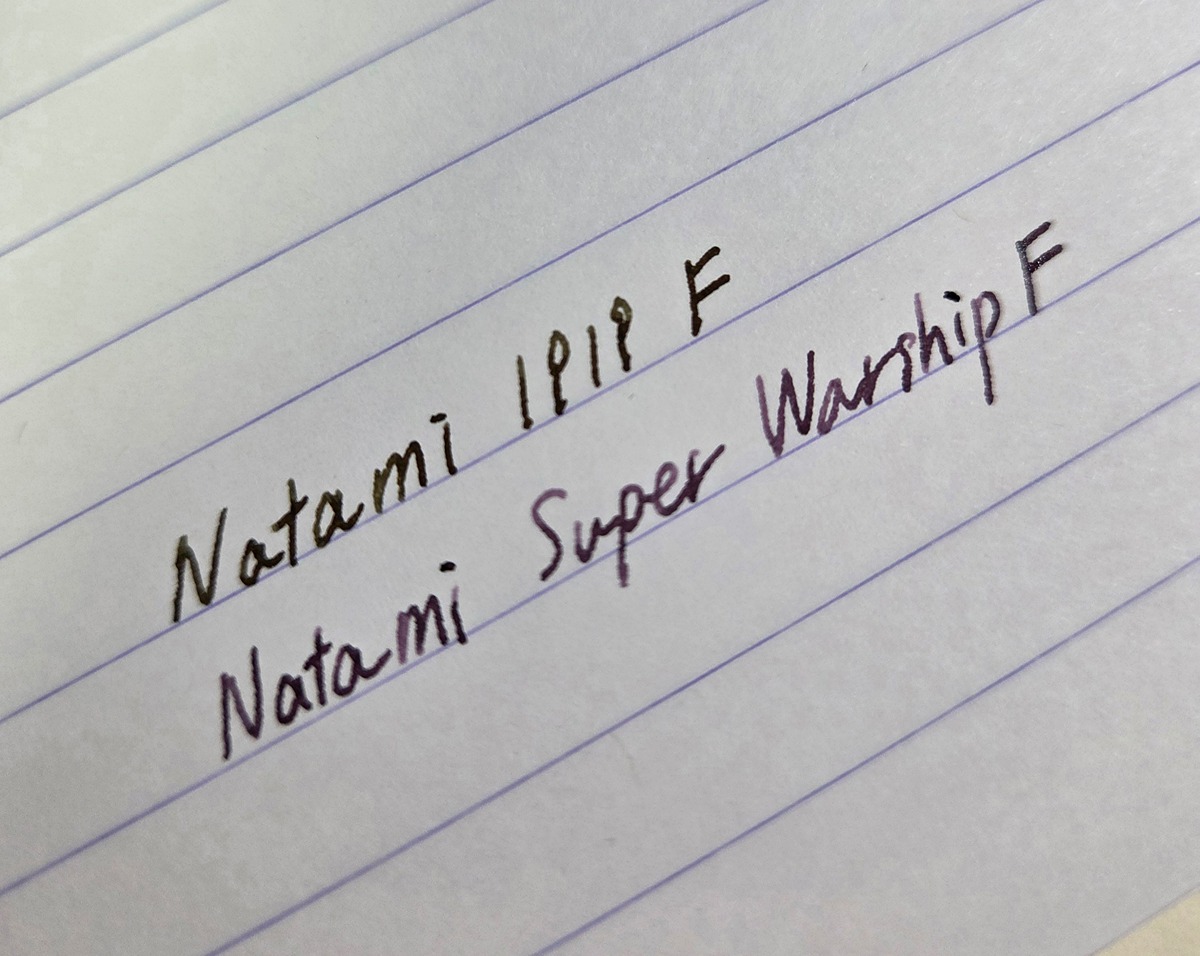 Natami 1919 F
Natami Super Warship F